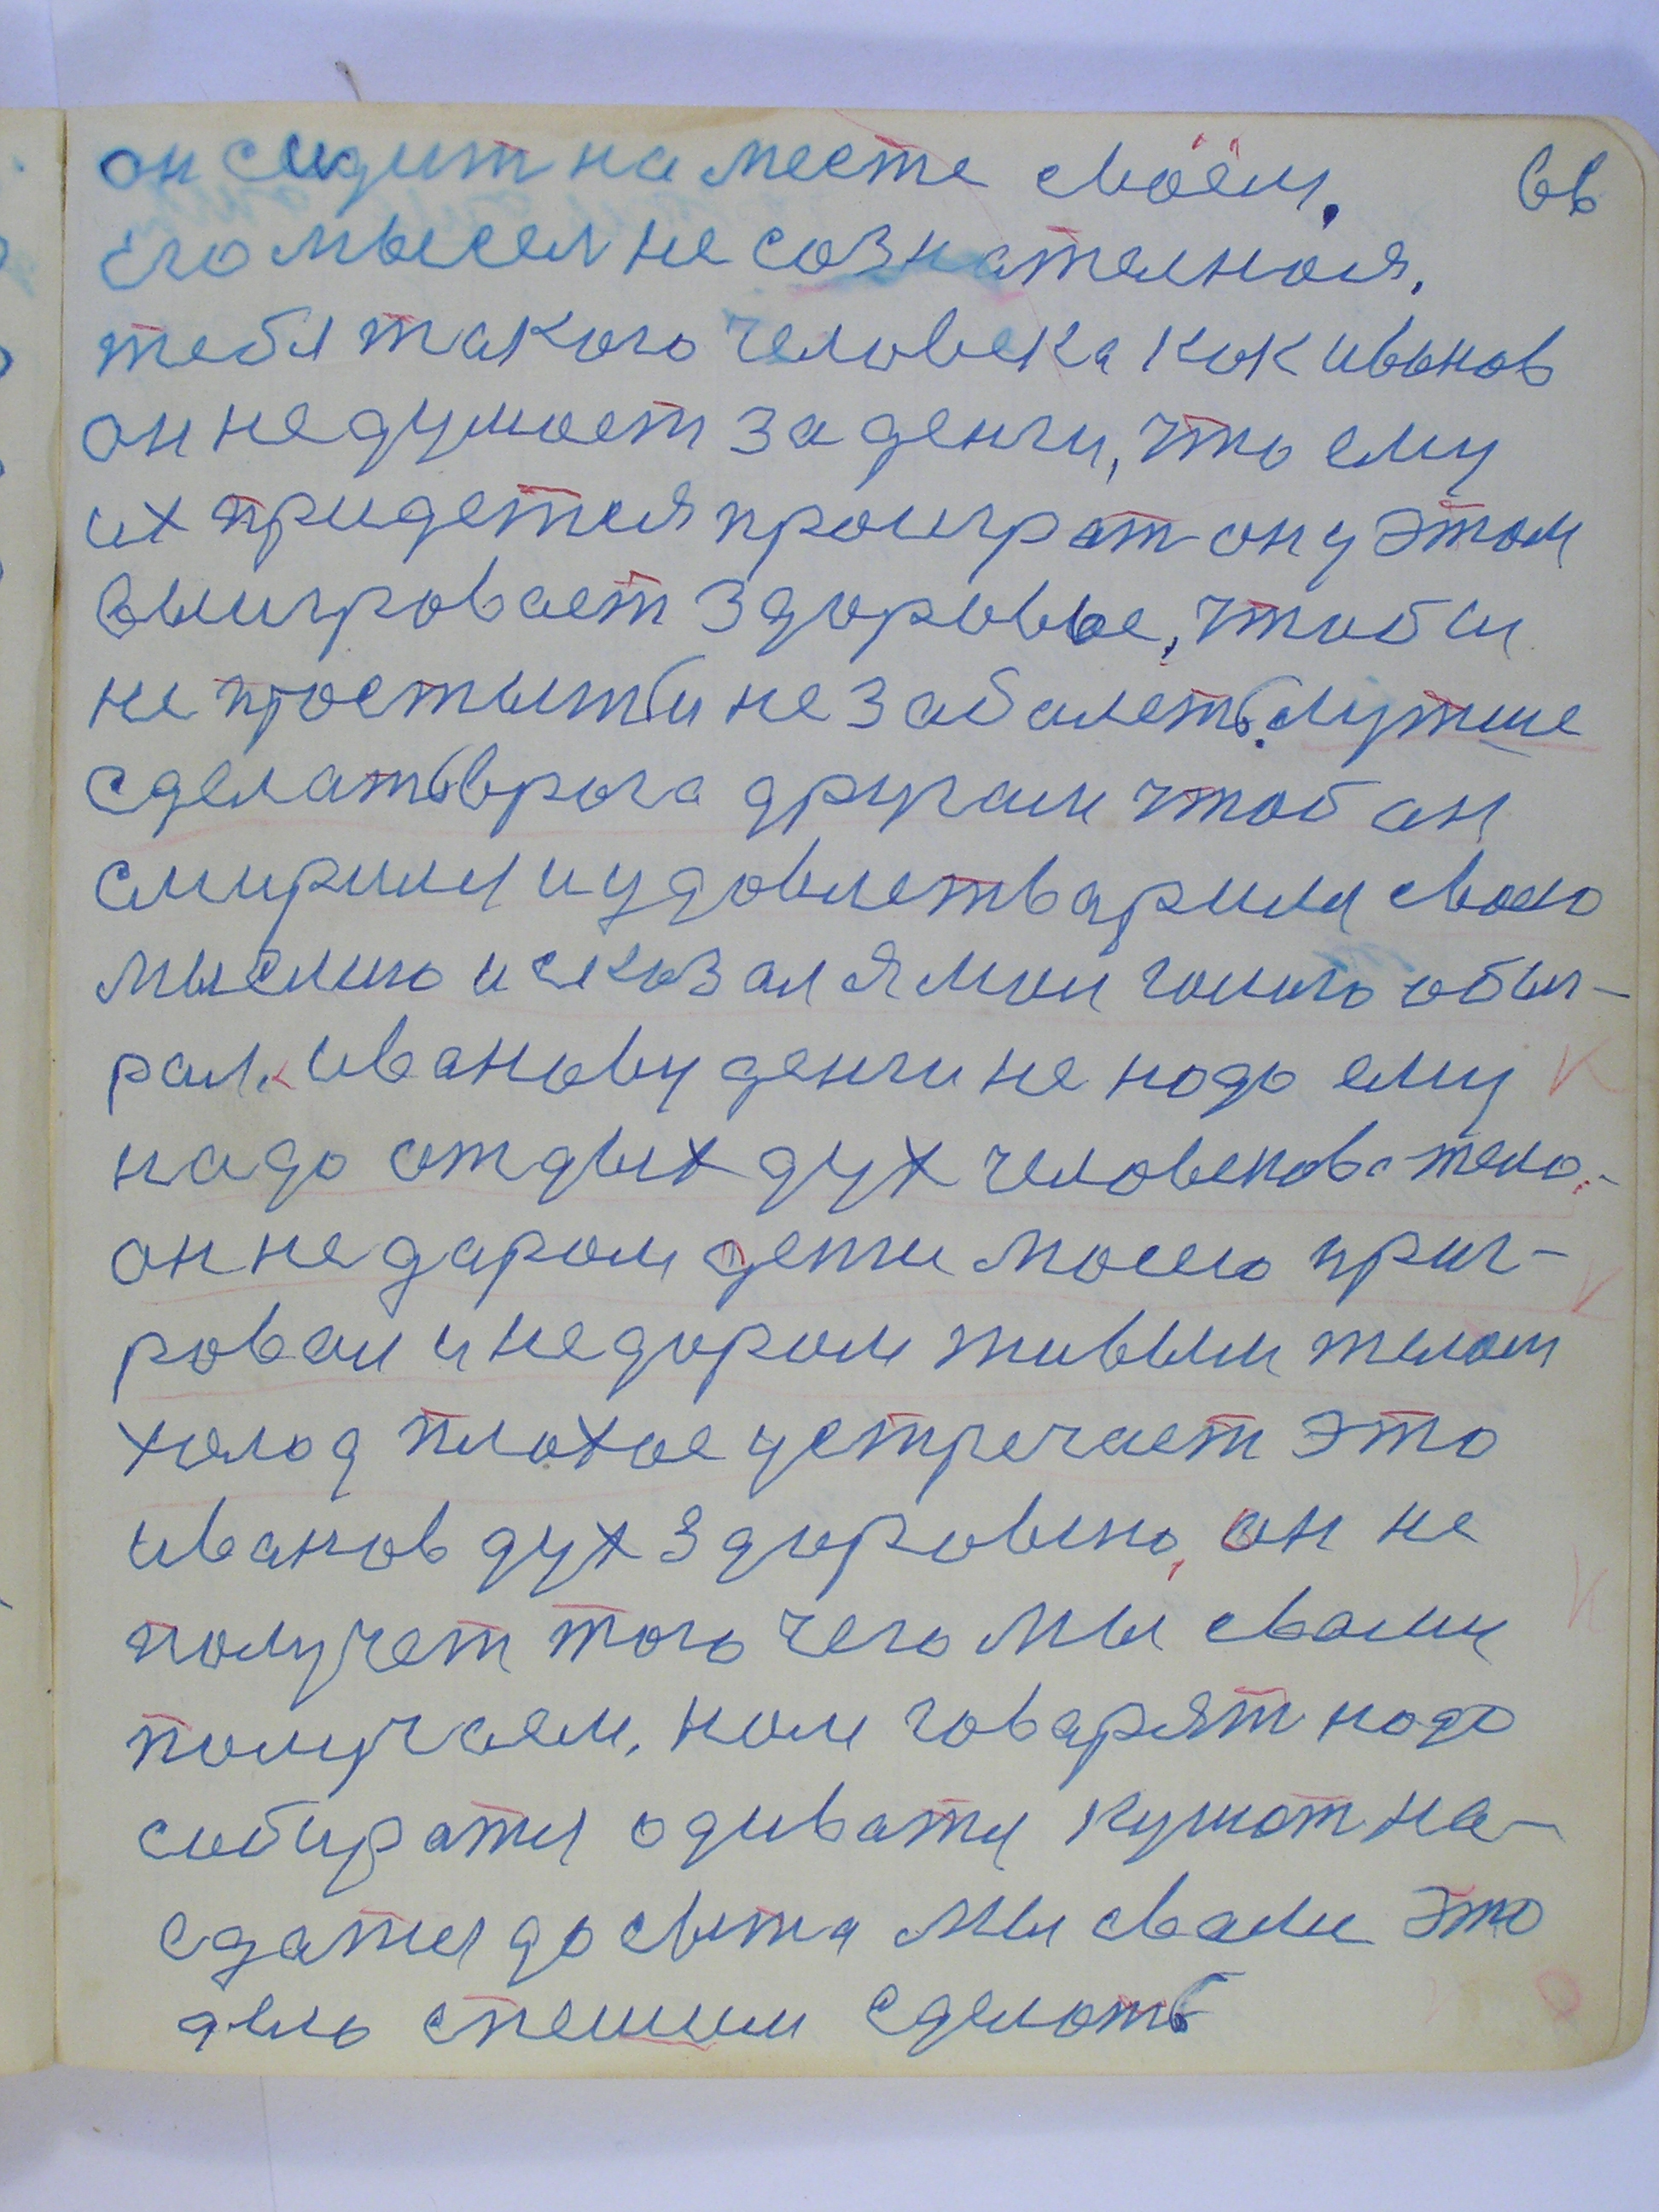 он сидит на месте своём. 66
его мысел не сознателная.
тебя такого человека как иванов
он не думает за денги, что ему
их придется проиграт он у этом
выигровает здоровье, чтобы
не простыть и не заболеть. Лутше
сделать врага другам чтоб он
смирился и удовлетварился своею
мыслию и сказал я мои
рал. Иванову денги не надо ему
надо отдых дух человека тело.
он не даром денги моею приг-
ровал и не даром живым телом
холод плохое устречает это
иванов дух здоровию, он не
получет того чего мы свами
получаем, нам говарят надо
собиратя одиватя кушат на-
едатия до сыта мы свами это
дело спешим сделать